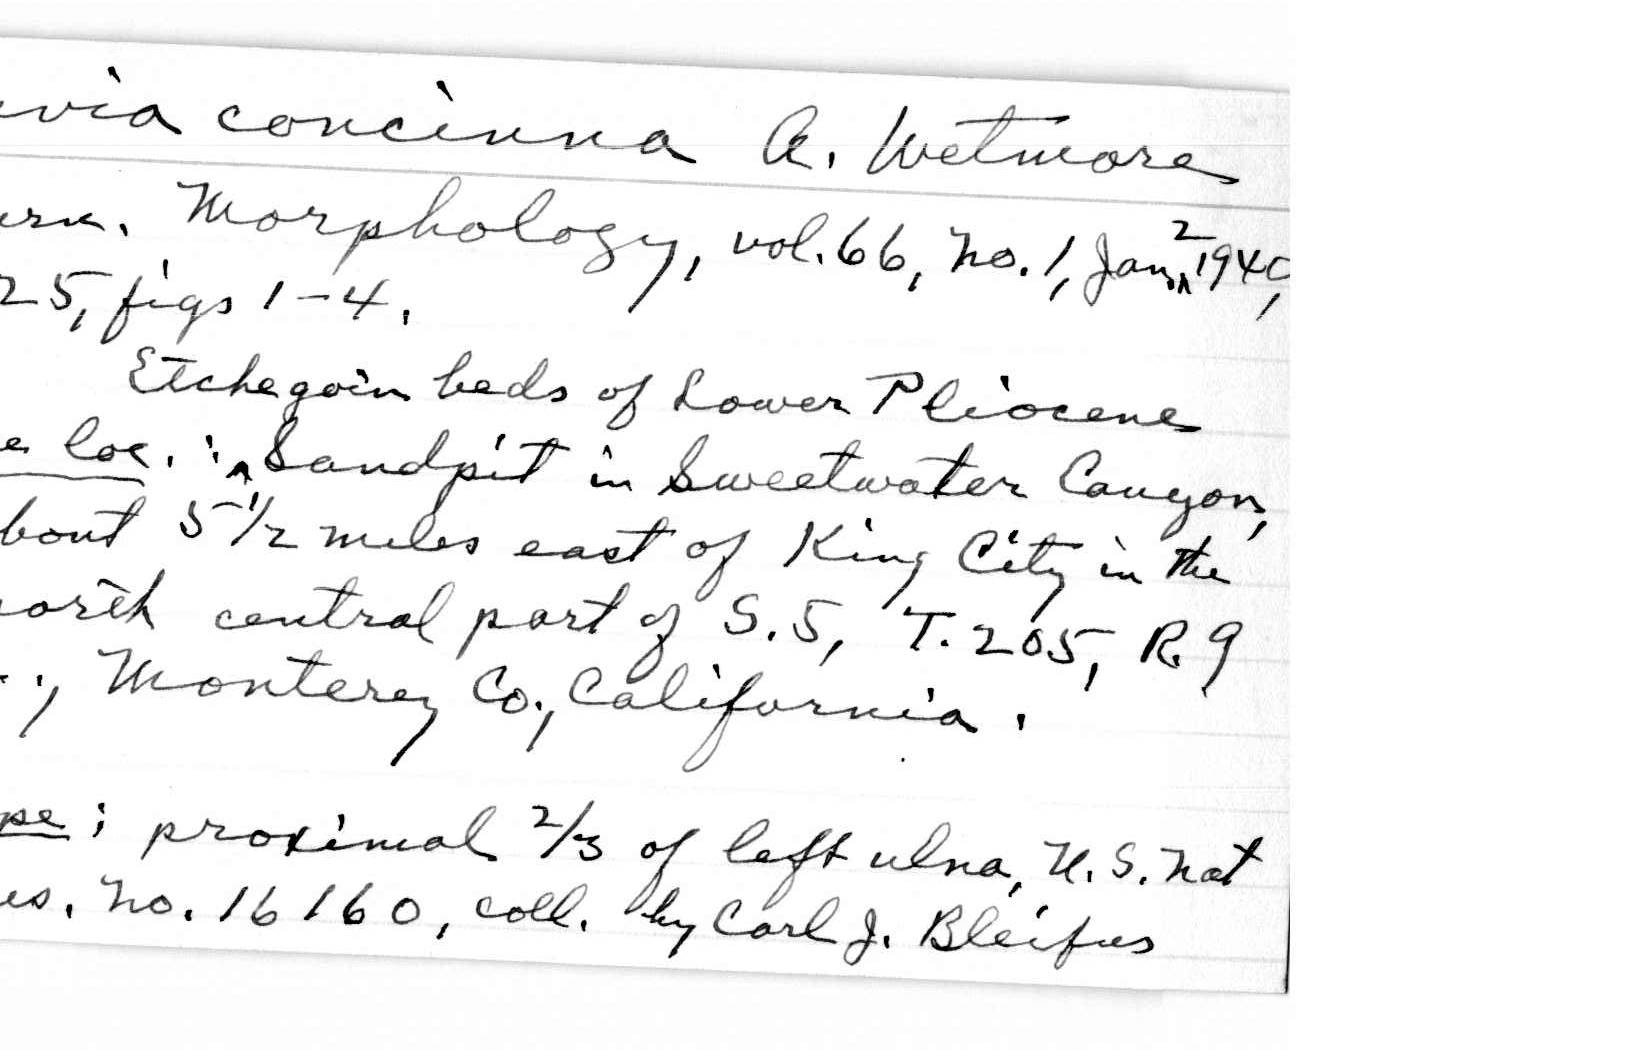 via concinna A. Wetmore
urn. Morphology, vol. 66, no. 1, Jan. 2 1940,
25, figs 1-4.
Etchegoin beds of Lower Pliocene
e loc.: Sandpit in Sweetwater Canyon,
bout 5 1/2 miles east of King City in the
north central part of S. 5, T. 20S, R. 9
., Monterey Co., California.
pe: proximal 2/3 of left ulna, U.S. Nat
us. No. 16160, coll. by Carl J. Bleifus